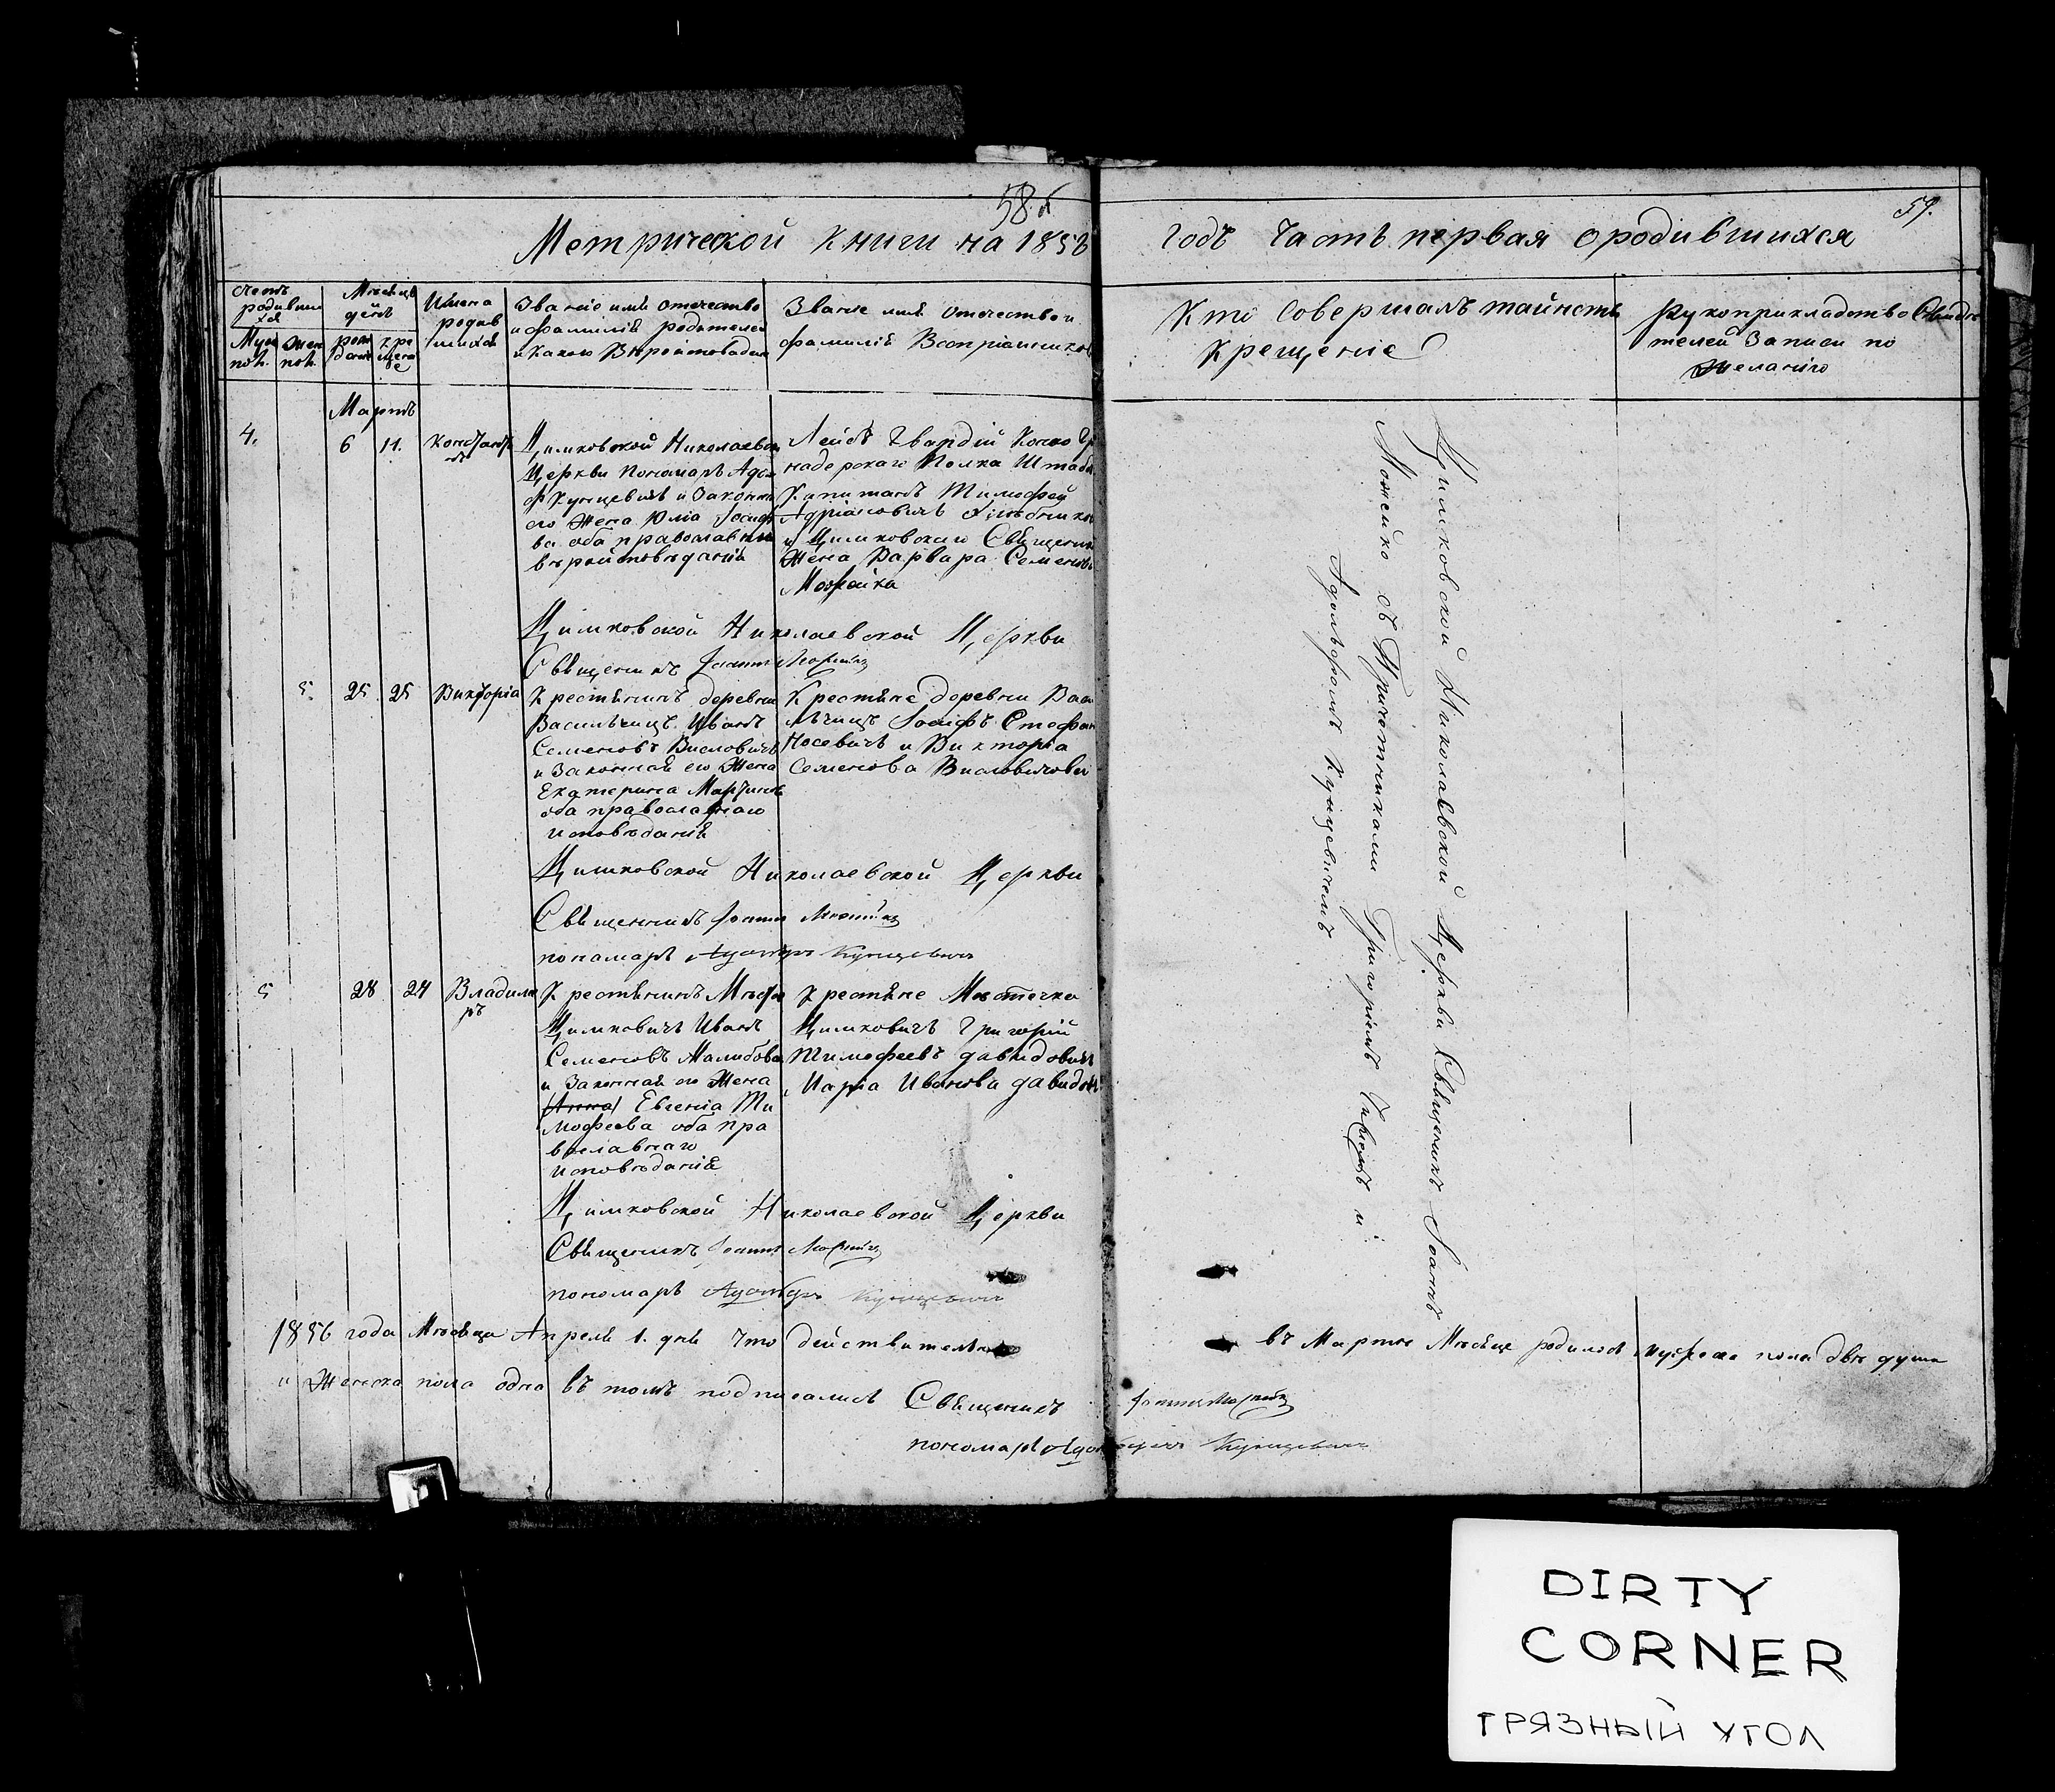 58.
59.
Метрической книги на 1856
годъ Часть первая о родившихся
Счетъ родившихся
Муж. пол.
Жен. пол.
Мѣсяцъ и день
рожденія
крещенія
Имена родившихся
Званіе имя отечество
и фамилія родителей
и какого Вѣроисповѣдан
Званіе имя отечество и
фамилія Воспріемников
Кто совершалъ таинств
Крещеніе
Рукоприкладство Свидѣ
телей Записи по
желанію
Мартъ
4.
6
11.
Константи
нъ
Цимковской Николаевск
Церкви Пономарь Адол
ф Кунцевичъ и Законна
его Жена Юлiа Iосифо
ва оба православнаго
вѣроисповѣданія
Лейбъ Гвардіи Конно Гр
надерскаго Полка Штабсъ
Капитанъ Тимофей
Адріановичъ Хлѣбнико
и Цимковскаго Священик
Жена Варвара Семенов
Можейка
Цимковской Николаевской Церкви
Священикъ Іоаннъ Можейко
5.
25
25
Викторіа
Крестянинъ деревни
Васильчицъ Иванъ
Семеновъ Висловичъ
и Законная его Жена
Екатерина Мартинов
оба православнаго
исповѣданія
Крестяне деревни Васи
льчицъ Іосифъ Стефан
Носевичъ и Викторіа
Семенова Висловичова
Цимковской Николаевской Церкви
Священникъ Іоаннъ Можейко
пономарь Адольфъ Кунцевичъ
5
28
24
Владими
ръ
Крестянинъ Мѣст
Цимковичъ Иванъ
Семеновъ
и Законная его Жена
(Анна) Евгеніа Ти
мофеева оба пра
вославнаго
исповѣданія
Крестяне Мѣстечка
Цимковичъ Григорій
Тимофеевъ Давидовичъ
Маріа Иванова Давидов
Цимковской Николаевской Церкви
Священикъ Іоаннъ Можейко
пономарь Адольфъ Кунцевичъ
Цимковской Николаевской Церкви Священикъ Іоаннъ
Можейко съ Причотниками Григоріемъ и
Адольфомъ Кунцевичемъ
1856 года Мѣсяца Апреля 1. дня Что действительно въ Мартѣ Мѣсяцѣ родилось мужеска пола двѣ душы
и Женска пола одна въ томъ подписались Священикъ Іоаннъ Можейко
пономарь Адольфъ Кунцевичъ
DIRTY
CORNER
ГРЯЗНЫЙ УГОЛ